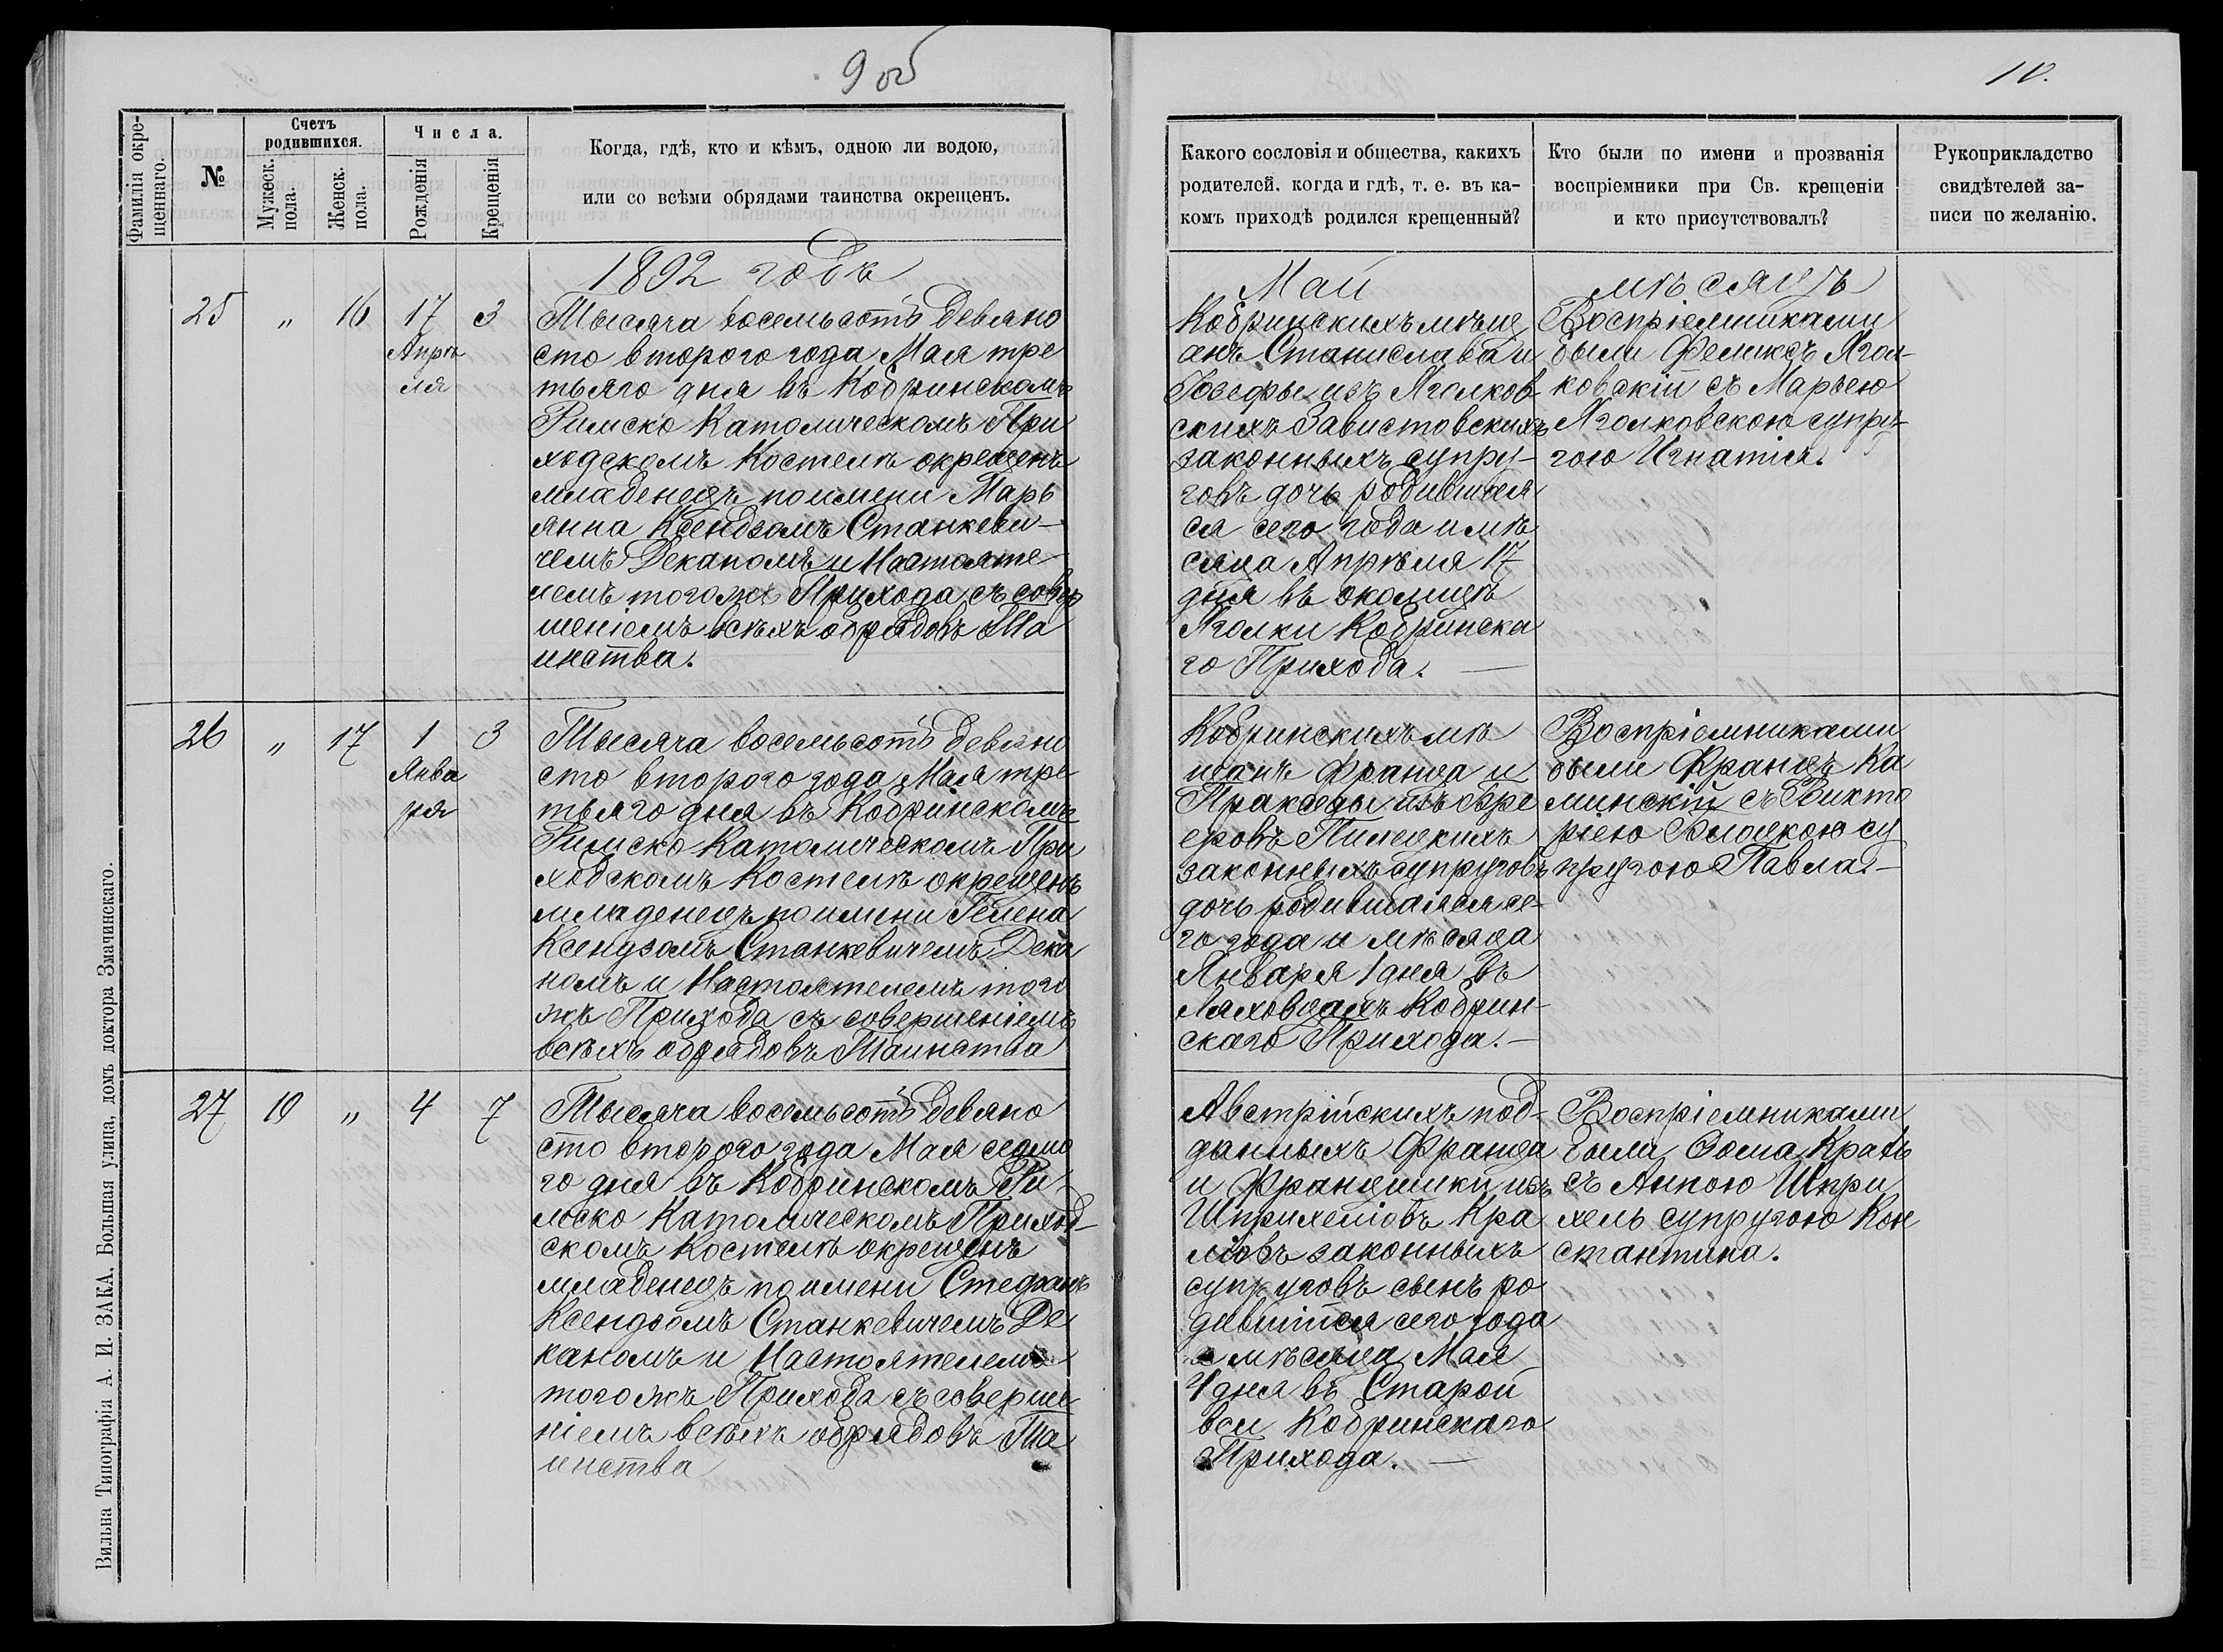 9 об
10.
Фамилія окре-
щеннаго.
№
Счетъ
родившихся.
Мужеск.
пола.
Женск.
пола.
Числа.
Рожденія
Крещенія
Когда, гдѣ, кто и кѣмъ, одною ли водою,
или со всѣми обрядами таинства окрещенъ.
Какого сословія и общества, какихъ
родителей. когда и гдѣ, т. е. въ ка-
комъ приходѣ родился крещенный?
Кто были по имени и прозванія
воспріемники при Св. крещеніи
и кто присутствовалъ?
Рукоприкладство
свидѣтелей за-
писи по желанію.
1892 годъ
Май
мѣсяцъ
25 " 16 17 3
Апрѣ
ля
Тысяча восемьсотъ девяно
сто второго года Мая тре
тьяго дня въ Кобринскомъ
Римско Католическомъ При
ходскомъ Костелѣ окрещенъ
младенецъ по имени Марь
янна Ксендзомъ Станкеви-
чемъ Деканомъ и Настояте
лемъ того жъ Прихода съ совер
шеніемъ всѣхъ обрядовъ Та
инства.
Кобринскихъ мѣщ
анъ Станислава и
Іозефы изъ Яголков-
скихъ Завистовскихъ
законныхъ супру-
говъ дочь родившая
ся сего года и мѣ
сяца Апрѣля 17
дня въ околицѣ
Яголки Кобринска
го Прихода.
Воспріемниками
были Феликсъ Ягол-
ковскій съ Марьею
Яголковскою супру-
гою Игнатія.
26 " 17 1 3
Янва
ря
Тысяча восемьсотъ девяно
сто второго года Мая тре
тьяго дня въ Кобринскомъ
Римско Католическомъ При
ходскомъ Костелѣ окрещенъ
младенецъ по имени Гелена
Ксендзомъ Станкевичемъ Дека
номъ и Настоятелемъ того
жъ Прихода съ совершеніемъ
всѣхъ обрядовъ Таинства
Кобринскихъ мѣ
щанъ Франца и
Пракседы изъ Бре
еровъ Пилецкихъ
законныхъ супруговъ
дочь родившаяся се-
го года и мѣсяца
Января 1 дня въ
Ляховцахъ Кобрин-
скаго Прихода.-
Воспріемниками
были Францъ Ка
минскій съ Викто
ріею су
пругою Павла.-
27 10 " 4 7
Тысяча восемьсотъ девяно
сто второго года Мая седмо
го дня въ Кобринскомъ Ри-
мско Католическомъ Приход-
скомъ Костелѣ окрещенъ
младенецъ по имени Стефанъ
Ксендзомъ Станкевичемъ Де
каномъ и Настоятелемъ
того жъ Прихода съ соверше
ніемъ всѣхъ обрядовъ Та
инства
Австрійскихъ под-
данныхъ Франца
и Францишки изъ
Шприхелювъ Кра
лювъ законныхъ
супруговъ сынъ ро
дившійся сего года
и мѣсяца Мая
4 дня въ Старой
вси Кобринскаго
Прихода.
Воспріемниками
были Фома Краль
съ Анною Шпри
хель супругою Кон
стантина.
Вильна Типографія А. И. ЗАКА, Большая улица, домъ доктора Змачинскаго.